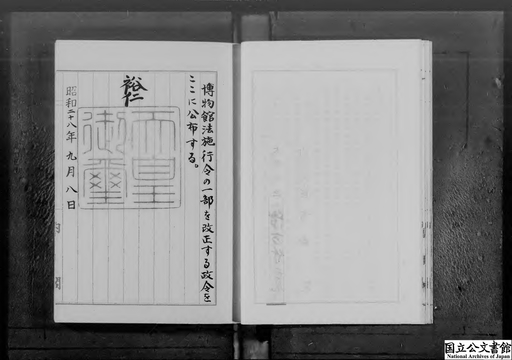 博物館法施行令の一部を改正する政令を
ここに公布する。
裕仁
天皇
御璽
昭和二十八年九月八日
国立公文書館
National Archives of Japan